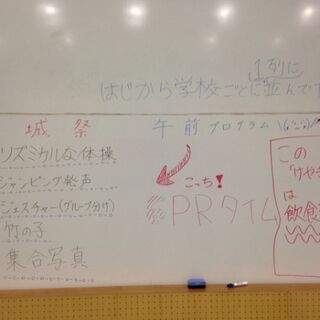 1列に
はじから学校ごとに並んで
城祭 午前プログラム
リズミカルな体操
ジャンピング発声
ジェスチャー(グループ分け)
竹の子
集合写真
こっち!
PRタイム
この
「けやき
は
飲食